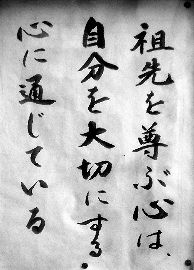 祖先を尊ぶ心は、
自分を大切にする
心に通じている